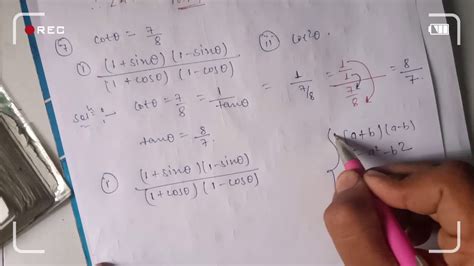 REC
7) cotθ = 7/8
i) (1+sinθ) (1-sinθ) / (1+cosθ) (1-cosθ)
ii) cot²θ
Solⁿ :- cotθ = 7/8 = 1/tanθ
= 1/(7/8) = 1/1/(7/8) = 8/7.
tanθ = 8/7.
i) (1+sinθ)(1-sinθ) / (1+cosθ) (1-cosθ)
(a+b)(a-b)
= a²-b²